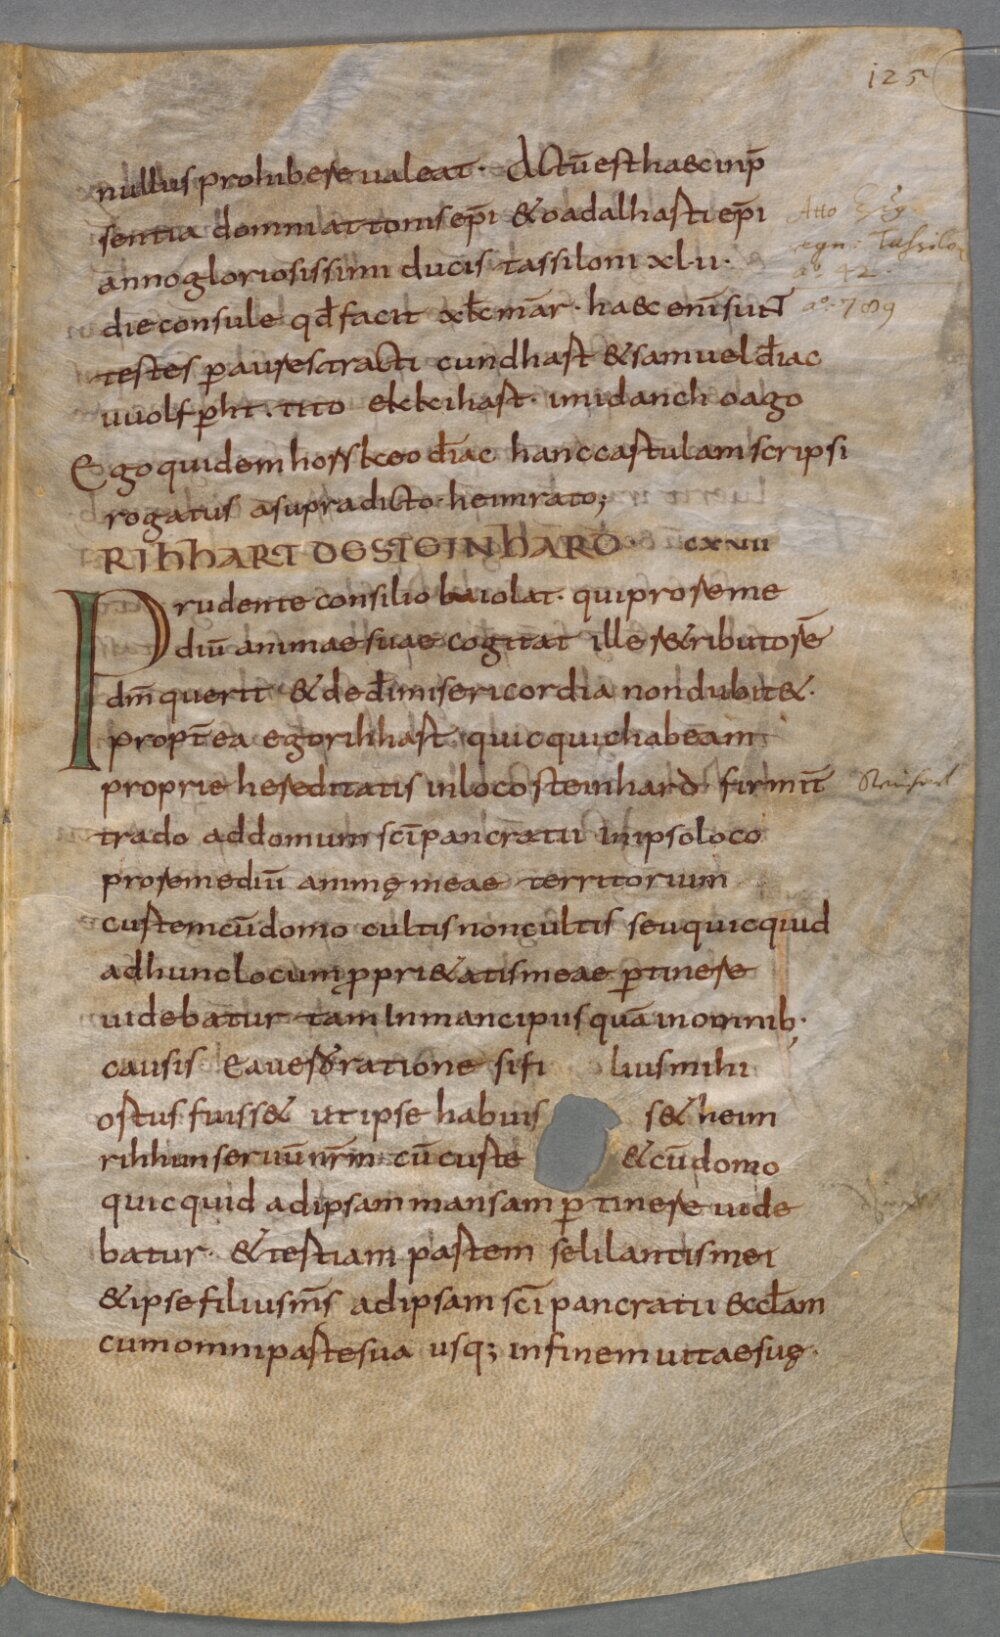 125
nullus prohibere ualeat. Actū est haec in p̄
sentia domni attonis ep̄i & oadalharti ep̄i
anno gloriosissimi ducis tassiloni xl·ii·
die consule qđ facit x kł mar̄· haec enī sunt
testes p aures tracti cundhart & samuel diac̄
uuolf p̄ht. tito ekkihart. imidanch oago
Ego quidem horskeo diac̄ hanc cartulam scripsi
rogatus a supradicto heimrato;
RIHHART DE STEINHARD· cxviii
Prudente consilio baiolat. qui pro reme
diū animae suae cogitat ille retributorē
dn̄m querit & de dī misericordia non dubit&·
propt̄ea ego rihhart quicquid habeam
proprie hereditatis in loco steinhard firmit̄
trado ad domum sc̄i pancratii in ipso loco
pro remediū animę meae territorium
curtem cū domo cultis non cultis seu quicquid
ad hunc locum propri&atis meae p̱tinere
uidebatur tam In mancipiis quā in omnib;·
causis Ea uero ratione si fi lius mihi
ortus fuiss& ut ipse habuis s& heim
rihhun seruū nr̄m cū curte & cū domo
quicquid ad ipsam mansam p̱tinere uide
batur· & tertiam partem selilantis mei
& ipse filius m̄s ad ipsam sc̄i pancratii eccłam
cum omni parte sua usq; in finem uitae suę·
Atto
Tassilo
a° 42.
a° 789